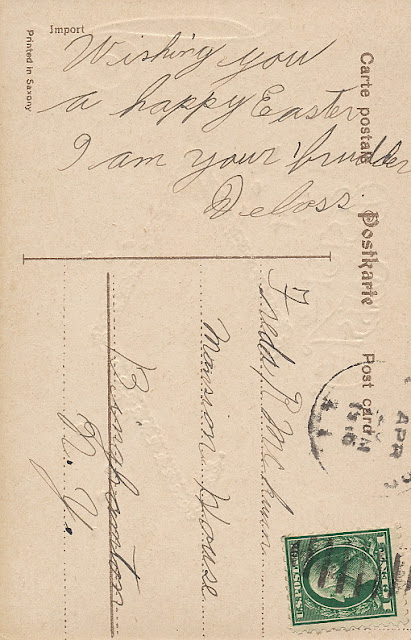 Import
Printed in Saxony
Wishing you
a happy Easter
I am your brudder
Deloss.
Carte postale Postkarte Post card
Freda R. Mc
Mansion House
Binghamton
N. Y.
APR